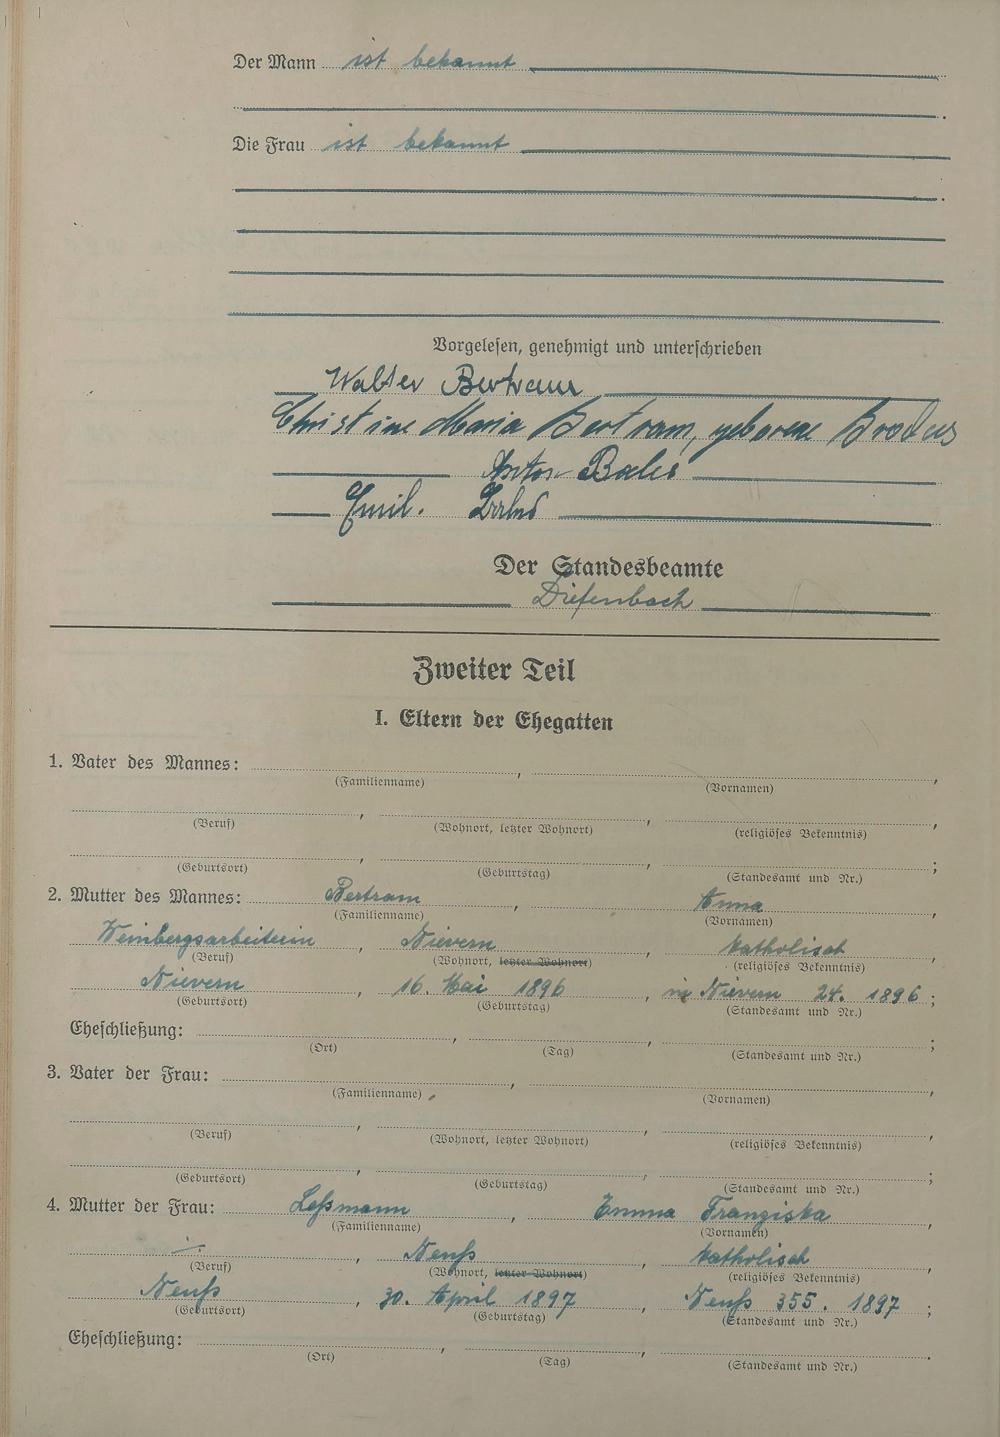 Der Mann ist bekannt
Die Frau ist bekannt
Vorgelesen, genehmigt und unterschrieben
Walter Bertram
Christine Maria Bertram, geborene
Anton Bales
Emil.
Der Standesbeamte
Diefenbach
Zweiter Teil
I. Eltern der Ehegatten
1. Vater des Mannes: , ,
(Familienname) (Vornamen)
, , ,
(Beruf) (Wohnort, letzter Wohnort) (religiöses Bekenntnis)
, , ;
(Geburtsort) (Geburtstag) (Standesamt und Nr.)
2. Mutter des Mannes: Bertram , Anna ,
(Familienname) (Vornamen)
Weinbergsarbeiterin , Nievern , katholisch
(Beruf) (Wohnort, letzter Wohnort) (religiöses Bekenntnis)
Nievern , 16. Mai 1896 , Nievern 24. 1896 ;
(Geburtsort) (Geburtstag) (Standesamt und Nr.)
Eheschließung: , , ;
(Ort) (Tag) (Standesamt und Nr.)
3. Vater der Frau: , ,
(Familienname) (Vornamen)
, , ,
(Beruf) (Wohnort, letzter Wohnort) (religiöses Bekenntnis)
, , ;
(Geburtsort) (Geburtstag) (Standesamt und Nr.)
4. Mutter der Frau: Leßmann , Emma Franziska ,
(Familienname) (Vornamen)
./. , Neuß , katholisch
(Beruf) (Wohnort, letzter Wohnort) (religiöses Bekenntnis)
Neuß , 30. April 1897 , Neuß 355. 1897 ;
(Geburtsort) (Geburtstag) (Standesamt und Nr.)
Eheschließung: , , .
(Ort) (Tag) (Standesamt und Nr.)